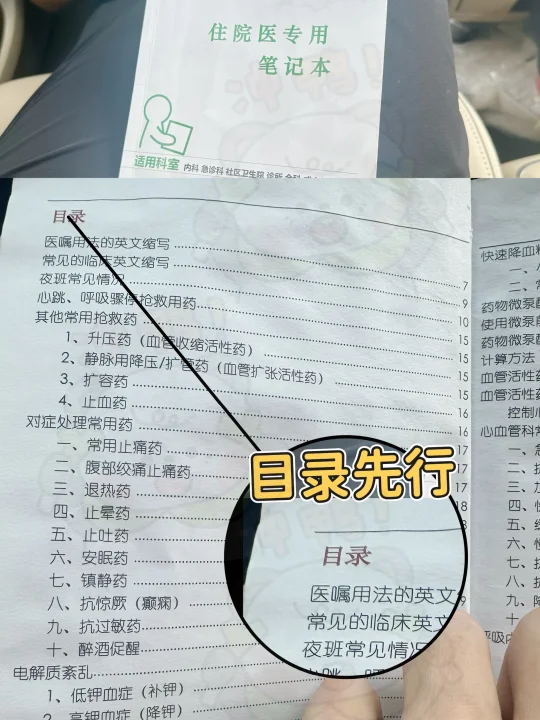 住院医专用
笔记本
适用科室 内科 急诊科 社区卫生院 诊所 全科
目录
医嘱用法的英文缩写
常见的临床英文缩写 7
夜班常见情况 9
心跳、呼吸骤停抢救用药 10
其他常用抢救药 15
1、升压药（血管收缩活性药） 15
2、静脉用降压/扩管药（血管扩张活性药） 15
3、扩容药 16
4、止血药 16
对症处理常用药 17
一、常用止痛药 17
二、腹部绞痛止痛药 17
三、退热药
四、止晕药
五、止吐药
六、安眠药
七、镇静药
八、抗惊厥（癫痫）
九、抗过敏药
十、醉酒促醒
电解质紊乱
1、低钾血症（补钾）
2、高钾血症（降钾）
目录先行
目录
医嘱用法的英文
常见的临床英文
夜班常见情况
快速降血糖
一、
二、
药物微泵
使用微泵
药物微泵
计算方法
血管活性药
血管活性药
控制心
心血管科常
一、
二、抗
三、
四、
五、
六、
七、抗
八、抗
九、降
十、